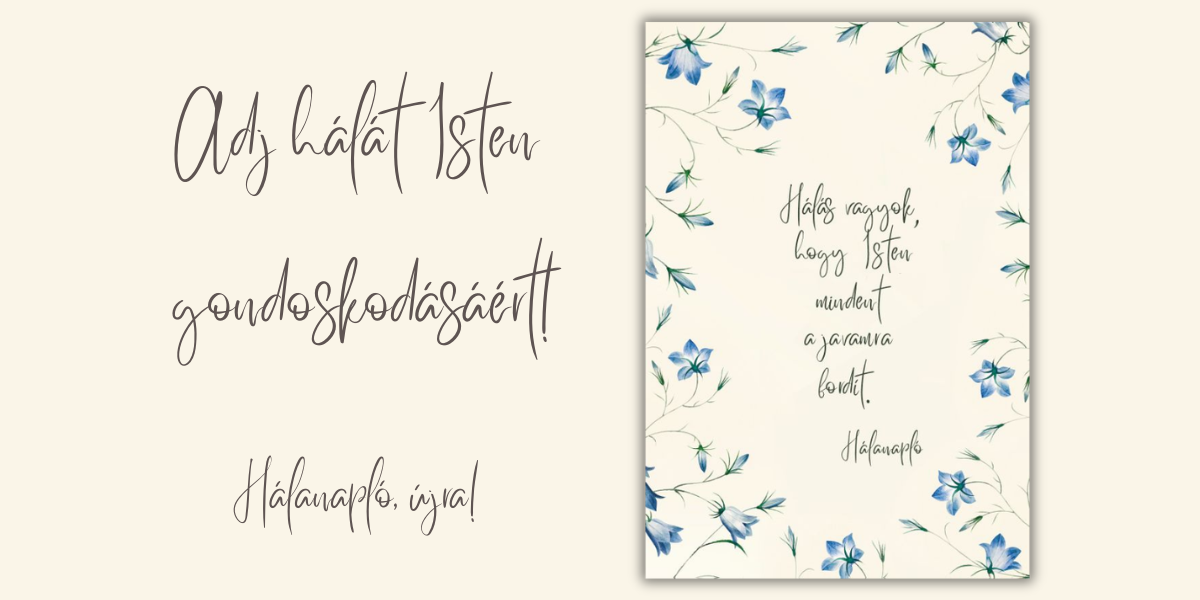 Adj hálát Isten
gondoskodásáért!
Hálanapló, újra!
Hálás vagyok,
hogy Isten
mindent
a javamra
fordít.
Hálanapló